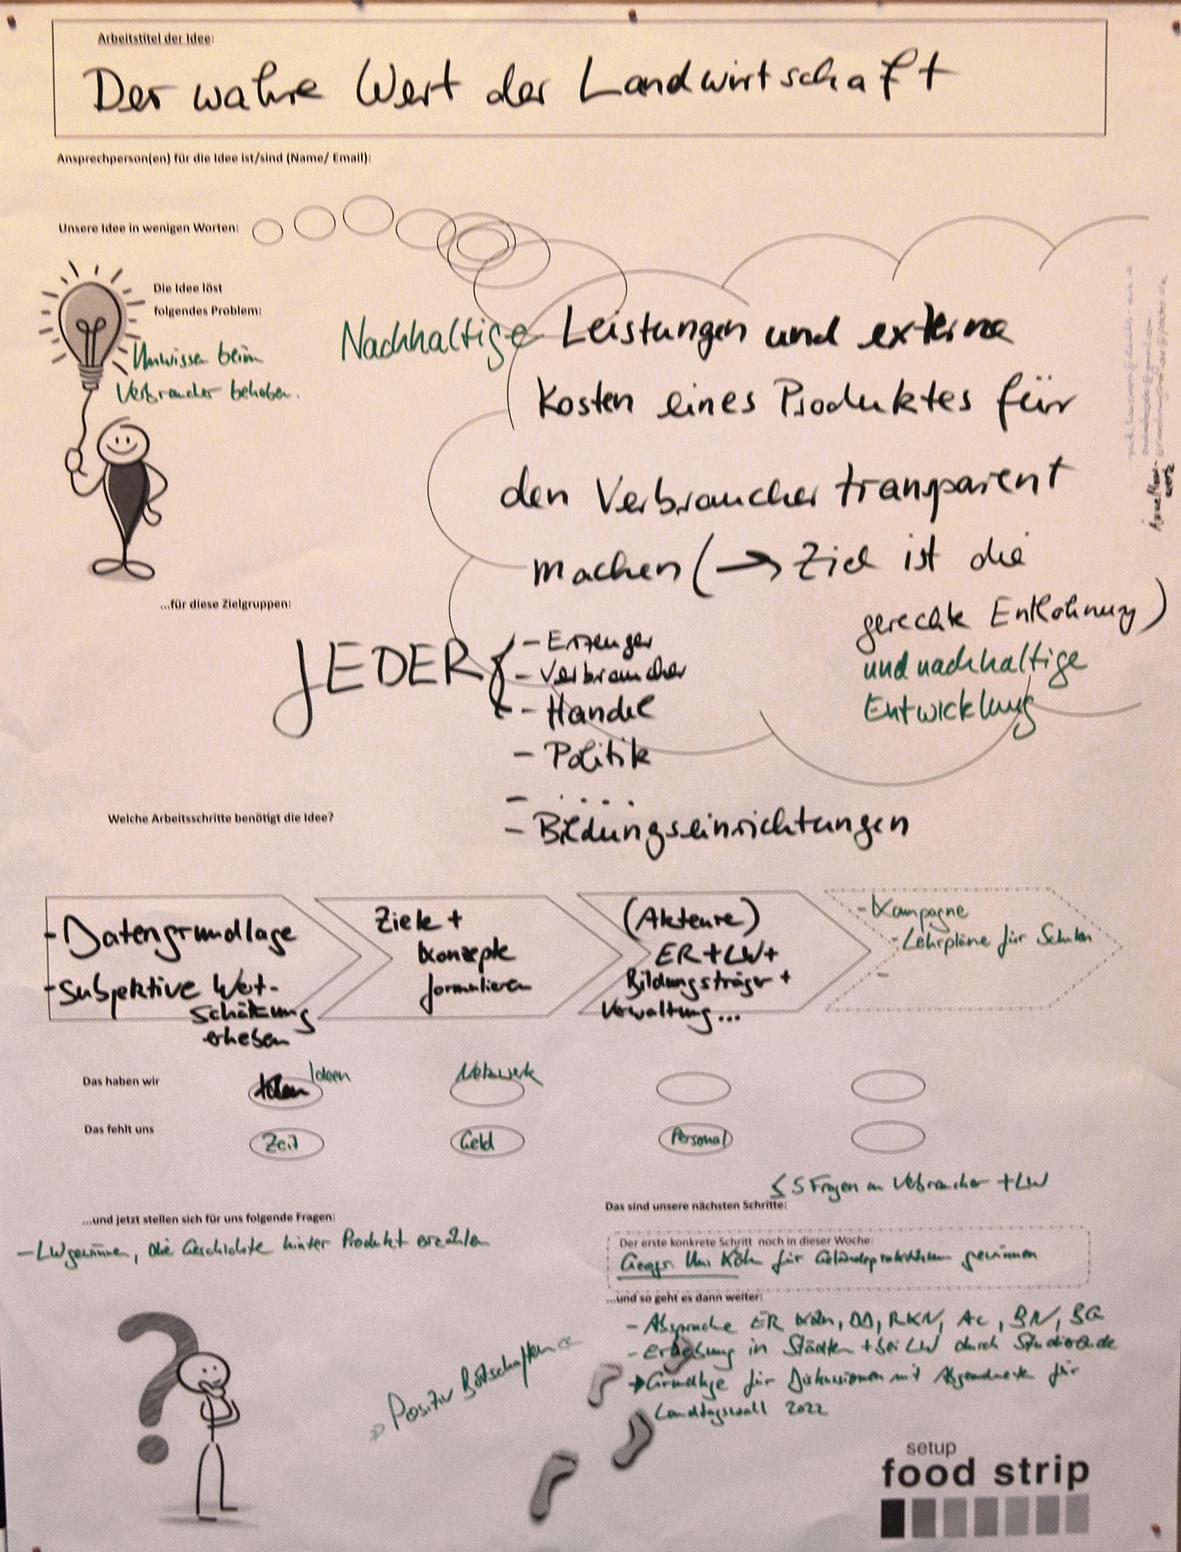 Arbeitstitel der Idee:
Der wahre Wert der Landwirtschaft
Ansprechperson(en) für die Idee ist/sind (Name/ Email):
Unsere Idee in wenigen Worten:
Die Idee löst
folgendes Problem:
Unwissen beim
Verbraucher beheben.
Nachhaltige Leistungen und externe
Kosten eines Produktes für
den Verbraucher transparent
machen (→ Ziel ist die
gerechte Entlohnung)
und nachhaltige
Entwicklung
...für diese Zielgruppen:
JEDER
- Erzeuger
- Verbraucher
- Handel
- Politik
- ....
- Bildungseinrichtungen
Welche Arbeitsschritte benötigt die Idee?
- Datengrundlage
- Subjektive Wert-
schätzung
erheben
Ziele +
Konzepte
formulieren
(Akteure)
ER+LW+
Bildungsträger +
Verwaltung...
- Kampagne
- Lehrpläne für Schulen
-
Das haben wir
Ideen
Netzwerk
Das fehlt uns
Zeit
Geld
Personal
≤ 5 Fragen an Verbraucher + LW
Das sind unsere nächsten Schritte:
...und jetzt stellen sich für uns folgende Fragen:
- LW gewinnen, die Geschichte hinter Produkt erzählen
Der erste konkrete Schritt noch in dieser Woche:
Geogr. Uni Köln für Geländepraktikum gewinnen
...und so geht es dann weiter:
- Absprache ER Köln, DD, RKN, AC, BN, BG
- Erhebung in Städten + bei LW durch Studierende
→ Grundlage für Diskussionen mit Abgeordnete für
Landtagswahl 2022
Positiv Botschaften
setup
food strip